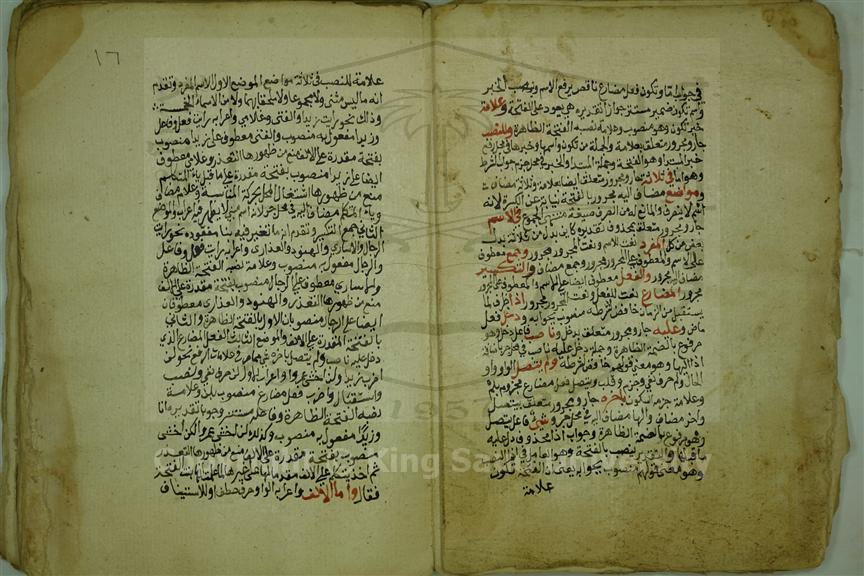 في جواب اما وتكون فعل مضارع ناقص يرفع الاسم وينصب الخبر
واسم تكون ضمير مستتر جوازا تقديره هي يعود على الفتحة وعلامة
خبر تكون وهو منصوب وعلامة نصبه الفتحة الظاهرة وللنصب
جار ومجرور متعلق بعلامة والجملة من تكون واسمها وخبرها في محل رفع
خبر المبتدا وهو الفتحة وجملة المبتدا والخبر في محل جزم جواب الشرط
وهو اما في ثلاثة جار ومجرور متعلق ايضا بعلامة وثلاثة مضاف
ومواضع مضاف اليه مجرور بالفتحة نيابة عن الكسرة لانه
اسم لا ينصرف والمانع له من الصرف صيغة منتهى الجموع في الاسم
جار ومجرور متعلق بمحذوف تقديره كاين بدل من ثلاثة بدل
بعض من كل المفرد نعت للاسم ونعت المجرور مجرور وجمع معطوف
على الاسم والمعطوف على المجرور مجرور وجمع مضاف والتكسير
مضاف اليه مجرور والفعل معطوف ايضا على الاسم والمعطوف على المجرور
مجرور المضارع نعت للفعل ونعت المجرور مجرور اذا ظرف لما
يستقبل من الزمان خافض لشرطه منصوب بجوابه ودخل فعل
ماض وعليه جار ومجرور متعلق بدخل وناصب فاعل دخل وهو
مرفوع بالضمة الظاهرة وجملة دخل عليه ناصب في محل جر باضافة
اذا اليها وهو معنى قولهم خافض لشرطه ولم يتصل الواو واو
الحال ولم حرف نفي وجزم وقلب ويتصل فعل مضارع مجزوم بلم
وعلامة جزمه السكون باخره جار ومجرور متعلق بيتصل
واخر مضاف والها مضاف اليه في محل جر وشي فاعل يتصل
وهو مرفوع بالضمة الظاهرة وجواب اذا محذوف دل عليه
ما قبلها والتقدير ينصب بالفتحة وهو العامل في اذا النصب
وهو معنى قولهم منصوب بجوابه يعني ان الفتحة تكون
علامة
١٦
علامة للنصب في ثلاثة مواضع الموضع الاول الاسم المفرد وتقدم
انه ما ليس مثنى ولا مجموعا ولا ملحقا بهما ولا من الاسماء الخمسة
وذلك نحو رايت زيدا والفتى وغلامي واعرابه رايت فعل وفاعل
وزيدا مفعول به منصوب والفتى معطوف على زيدا منصوب
بفتحة مقدرة على الالف منع من ظهورها التعذر وغلامي معطوف
ايضا على زيدا منصوب بفتحة مقدرة على ما قبل ياء المتكلم
منع من ظهورها اشتغال المحل بحركة المناسبة وغلام مضاف
وياء المتكلم مضاف اليه في محل جر لانه اسم مبني لا يظهر فيه اعراب والموضع
الثاني جمع التكسير وتقدم انه ما تغير فيه بناء مفرده نحو رايت
الرجال والاسارى والهنود والعذارى واعرابه رايت فعل وفاعل
والرجال مفعول به منصوب وعلامة نصبه الفتحة الظاهرة
والاسارى معطوف على الرجال منصوب بفتحة مقدرة على الالف
منع من ظهورها التعذر والهنود والعذارى معطوفان
ايضا على الرجال منصوبان الاول بالفتحة الظاهرة والثاني
بالفتحة المقدرة على الالف والموضع الثالث الفعل المضارع الذي
دخل عليه ناصب ولم يتصل باخره شي مما مر في علامات الرفع نحو لن
اضرب زيدا ولن اخشى عمرا واعرابه لن حرف نفي ونصب
واستقبال واضرب فعل مضارع منصوب بلن وعلامة
نصبه الفتحة الظاهرة وفاعله مستتر وجوبا تقديره انا
وزيدا مفعول به منصوب وكذلك لن اخشى عمرا لكن اخشى
منصوب بفتحة مقدرة على الالف منع من ظهورها التعذر
ثم اخذ يتكلم على الالف مقدما لها على غيرها
فقال واما الالف واعرابه الواو حرف عطف او للاستيناف